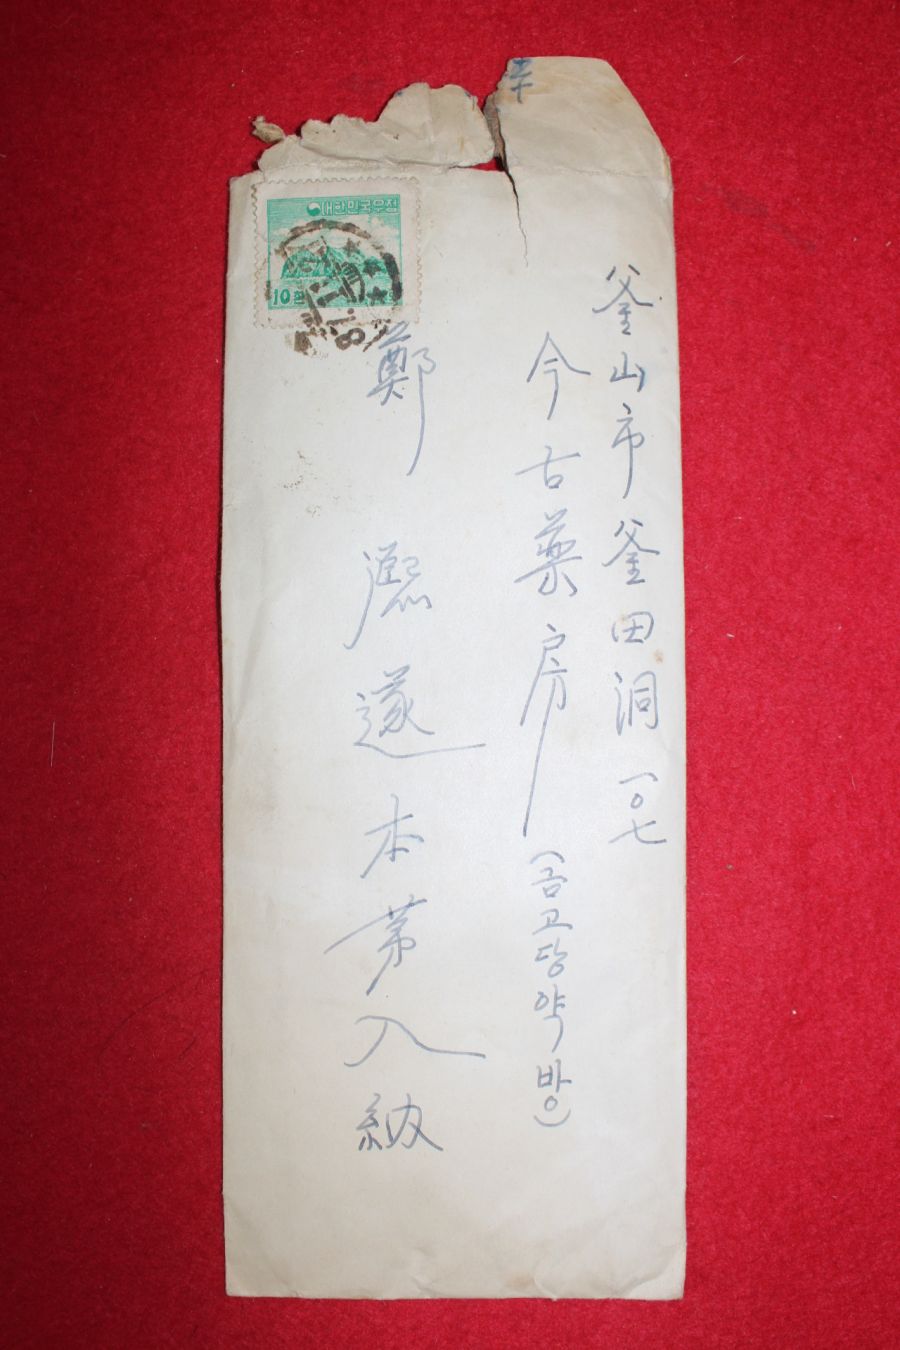 釜山市釜田洞 一〇七
今古薬房 (금고당약방)
鄭 遯本第入納
대한민국우정
10환